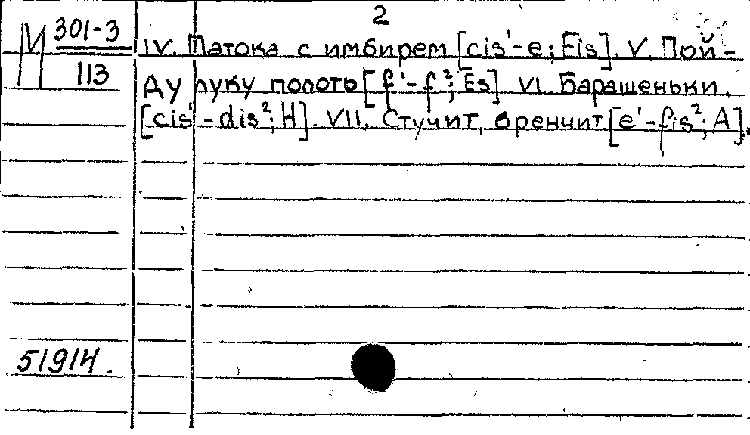 2
М 301-3
113
IV. Патока с имбирем [cis'-e; Fis]. V. Пой-
ду луку полоть [f'-f²; Es] VI. Барашеньки.
[cis'-dis²; H]. VII. Стучит, бренчит [e'-fis²; A].
51914.